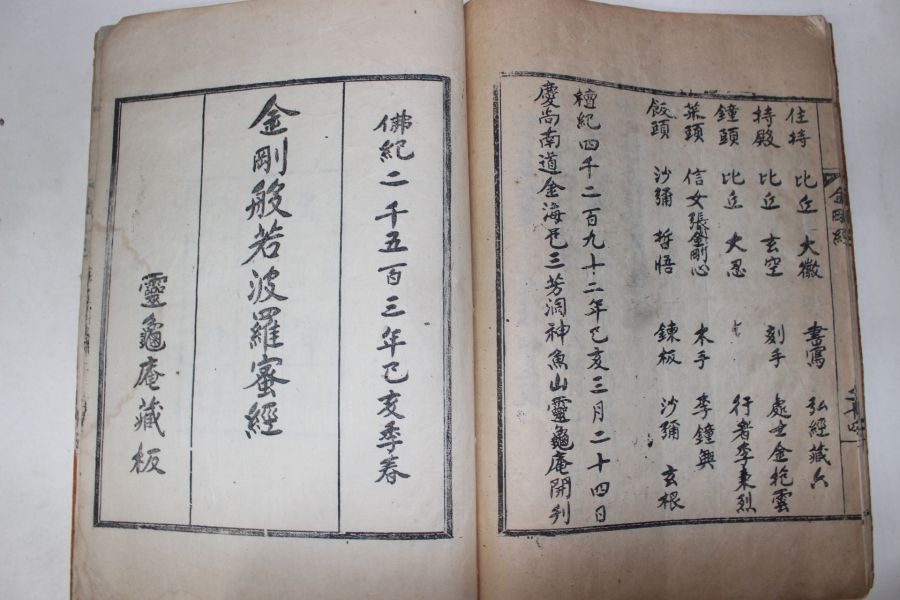 金剛經
住持 比丘 大徽 書寫 弘經藏六
持殿 比丘 玄空 刻手 處士金抱雲
鐘頭 比丘 大忍 行者李東烈
菜頭 信女張金剛心 木手 李鐘興
飯頭 沙彌 哲悟 鍊板 沙彌 玄根
檀紀四千二百九十二年己亥三月二十四日
慶尚南道金海邑三芳洞神魚山靈龜庵開刊
佛紀二千五百三年己亥季春
金剛般若波羅蜜經
靈龜庵藏板